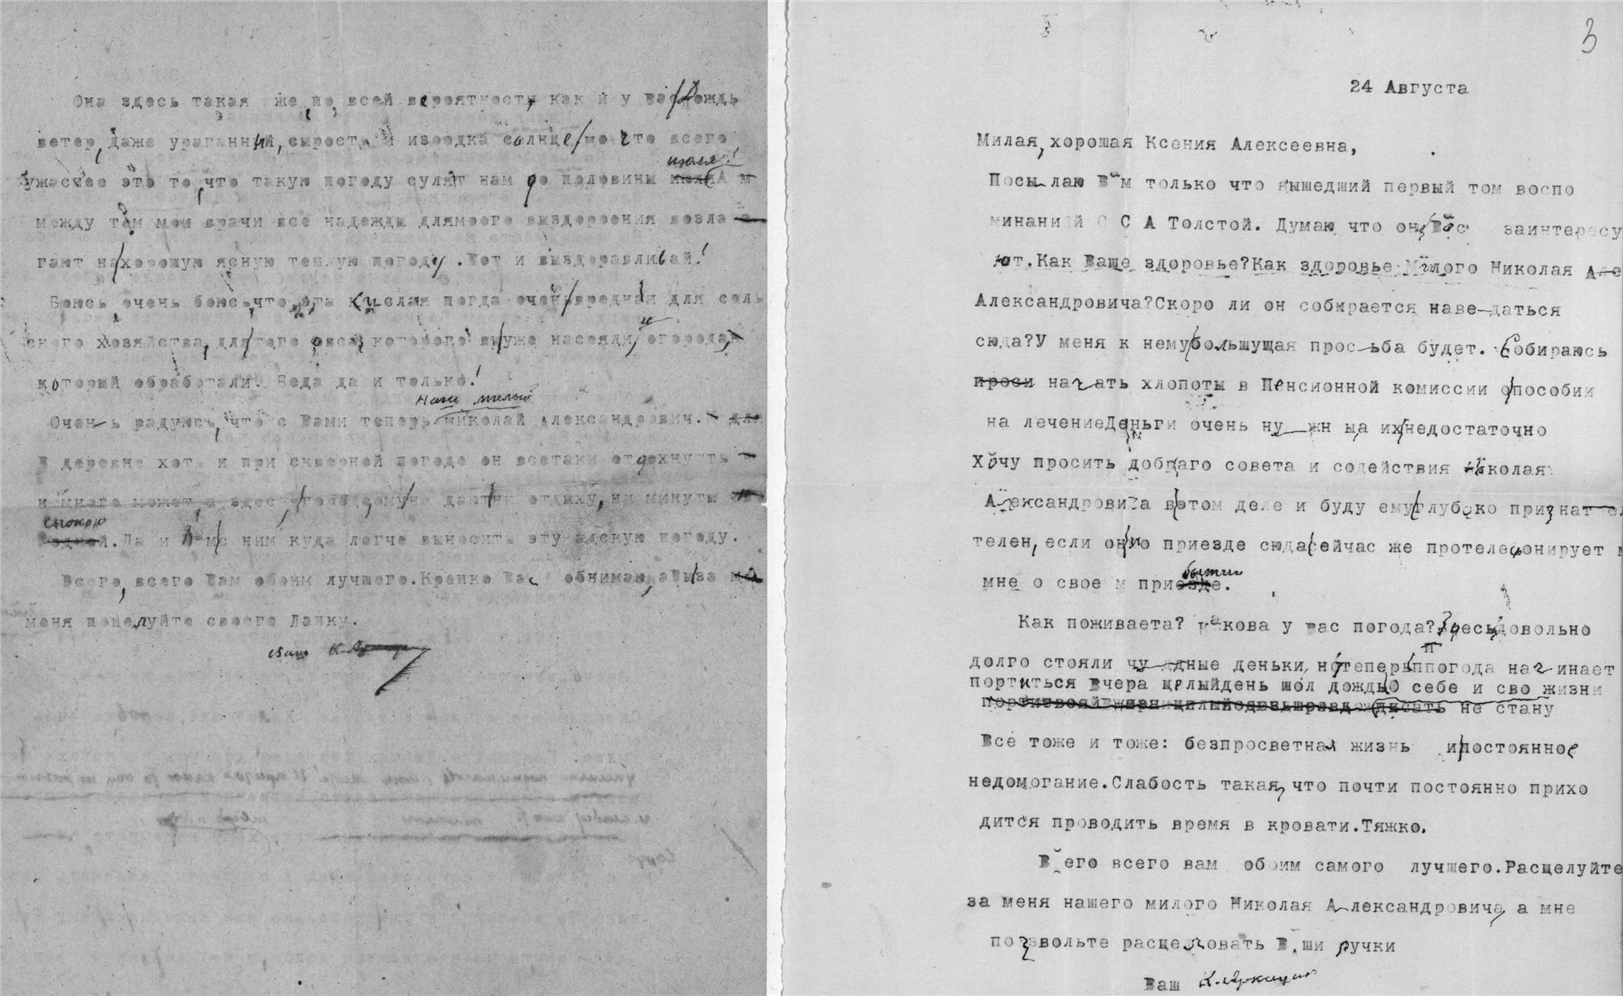 Она здесь такая же, по всей вероятности, как и у вас. Дождь
ветер, даже ураганный, сырость и изредка солнце, но что всего
ужаснее это то, что такую погоду сулят нам до половины июля! А
между тем мои врачи все надежды для моего выздоровения возла
гают на хорошую ясную теплую погоду. Вот и выздоравливай!
Боюсь, очень боюсь, что эта кислая погда очень вредна для сель
ского хозяйства, для того овса, которого вы уже насеяли, и огорода,
который обработали. Беда да и только!
Очень радуюсь, что с Вами теперь наш милый Николай Александрович.
В деревне хоть и при скверной погоде он всетаки отдохнуть
и много может, а здесь, в городе, ему не дают ни отдыху, ни минуты
спокою. Да и Вам с ним куда легче выносить эту адскую погоду.
Всего, всего Вам обоим лучшего. Крепко Вас обнимаю, а Вы за
меня поцелуйте своего Лапку.
Ваш
3
24 Августа
Милая, хорошая Ксения Алексеевна,
Посылаю Вам только что вышедший первый том воспо
минаний С А Толстой. Думаю что они Вас заинтересу
ют. Как Ваше здоровье? Как здоровье милого Николая Але
Александровича? Скоро ли он собирается наве-даться
сюда? У меня к нему большущая прось-ба будет. Собираюсь
проси начать хлопоты в Пенсионной комиссии о пособии
на лечение Деньги очень нужны а их недостаточно
Хочу просить добраго совета и содействия Николая
Александровича в этом деле и буду ему глубоко признат
телен, если он по приезде сюда сейчас же протелефонирует
мне о своем прибытии.
Как поживаета? Какова у вас погода? Здесь довольно
долго стояли чудные деньки, но теперь погода начинает
портиться Вчера целый день шол дождь О себе и сво жизни
писать не стану
Все тоже и тоже: безпросветная жизнь и постоянное
недомогание. Слабость такая, что почти постоянно прихо
дится проводить время в кровати. Тяжко.
Всего всего вам обоим самого лучшего. Расцелуйте
за меня нашего милого Николая Александровича, а мне
позвольте расцеловать Ваши ручки
Ваш